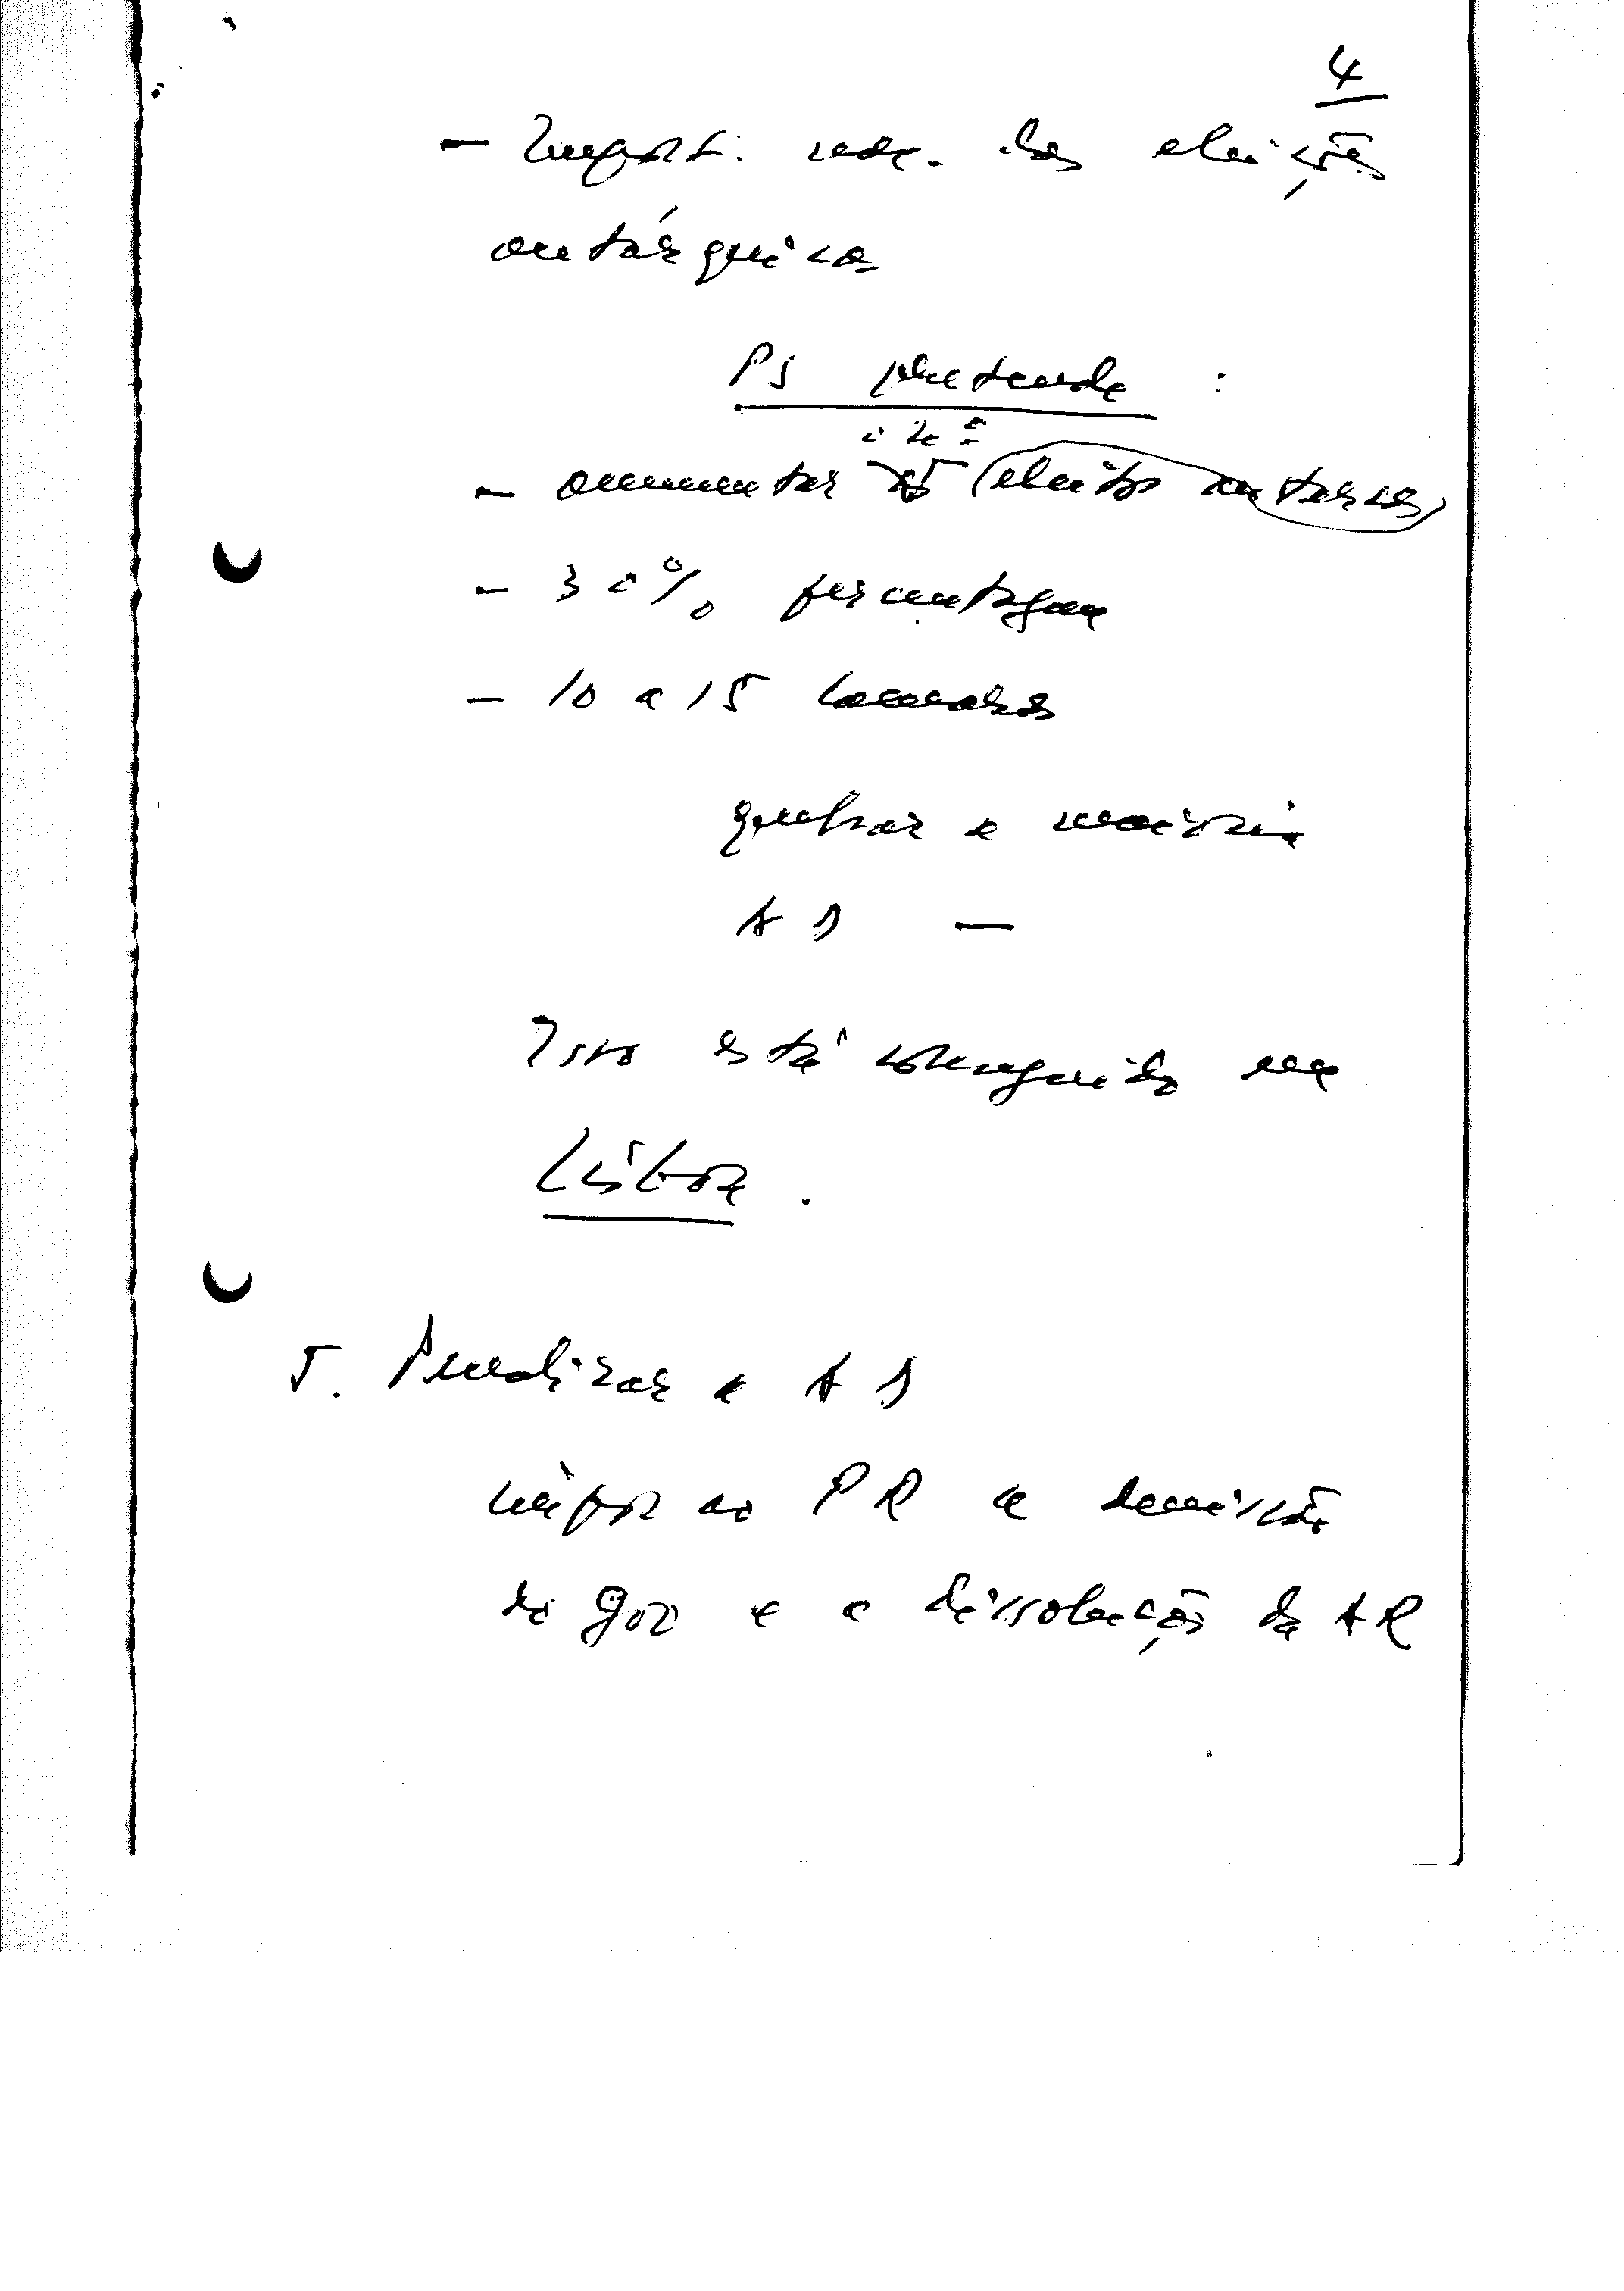 4
- Import. nac. das eleições
autárquicas
PS pretende :
o nº
- aumentar (eleitos autarcas)
- 30% percentagem
- 10 a 15 Câmaras
quebrar a maioria
AD —
Isto está conseguido em
Lisboa .
5. Penalizar a AD
impor ao PR a demissão
do gov e a dissolução da AR